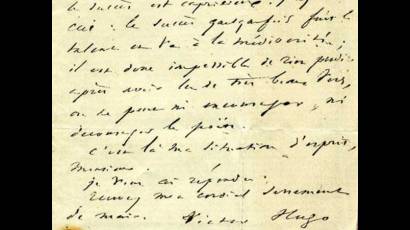 le succès est capricieux.
 le succès quelquefois fuit le
talent et va à la médiocrité;
il est donc impossible de rien prédire
après avoir lu de très beaux vers,
on ne peut ni encourager, ni
décourager le poète.
c'est là ma situation d'esprit,
monsieur.
je vous ai répondu.
recevez mon cordial serrement
de main. Victor Hugo